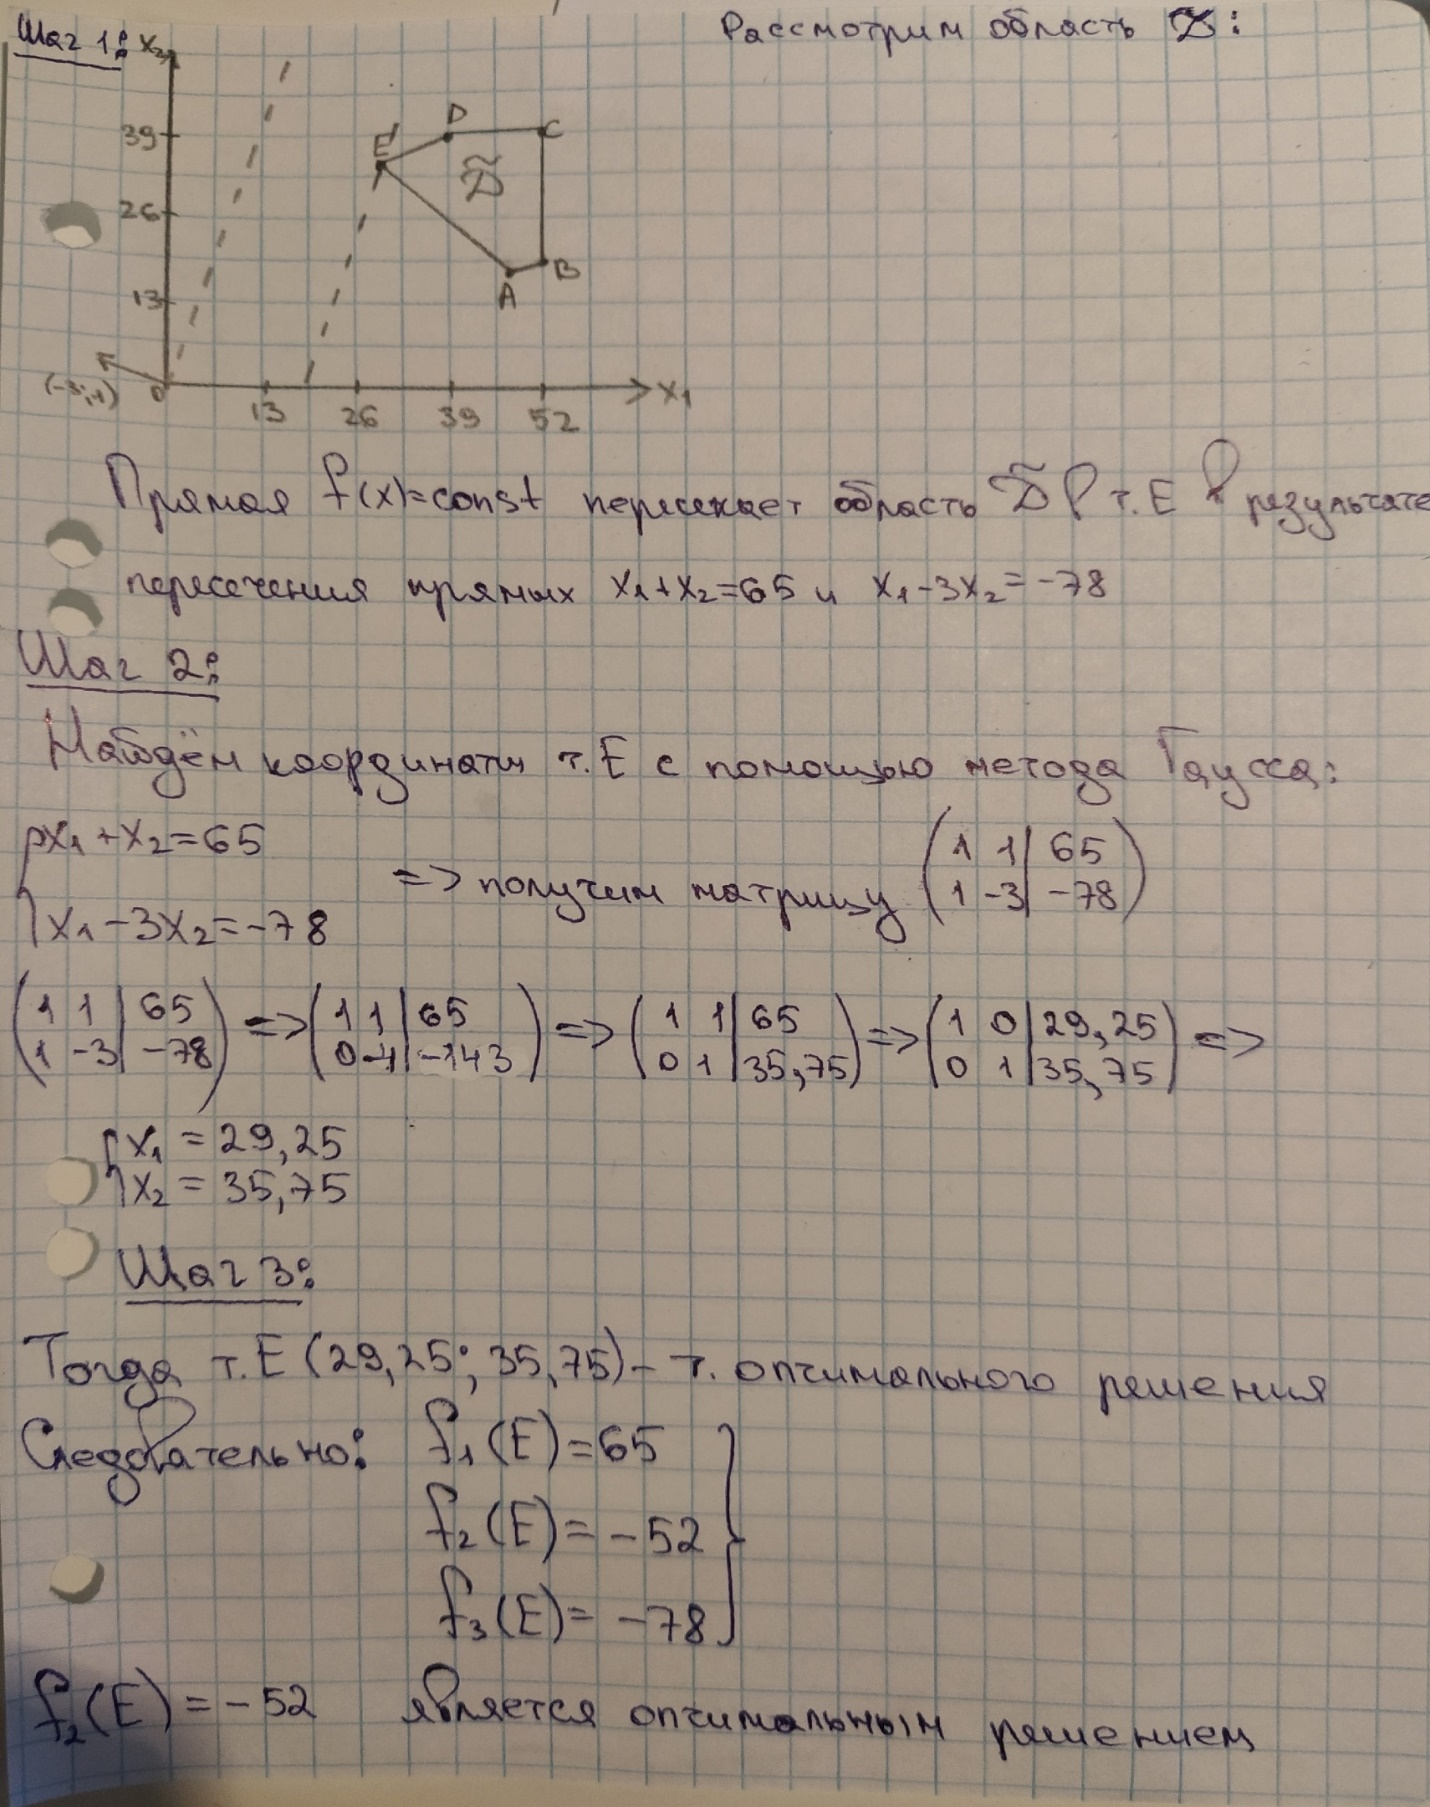 Шаг 1:
Рассмотрим область D̃:
x₂
39
26
13
0
13 26 39 52 x₁
(-3;1)
E D C
D̃
A B
Прямая f(x)=const пересекает область D̃ в т. E в результате
пересечения прямых x₁+x₂=65 и x₁-3x₂=-78
Шаг 2:
Найдём координаты т. E с помощью метода Гаусса:
{x₁+x₂=65
{x₁-3x₂=-78
=> получим матрицу (1 1 | 65; 1 -3 | -78)
(1 1 | 65; 1 -3 | -78) => (1 1 | 65; 0 -4 | -143) => (1 1 | 65; 0 1 | 35,75) => (1 0 | 29,25; 0 1 | 35,75) =>
{x₁ = 29,25
{x₂ = 35,75
Шаг 3:
Тогда т. E (29,25; 35,75) – т. оптимального решения
Следовательно: f₁(E)=65
f₂(E)= -52
f₃(E)= -78
f₂(E) = -52 является оптимальным решением